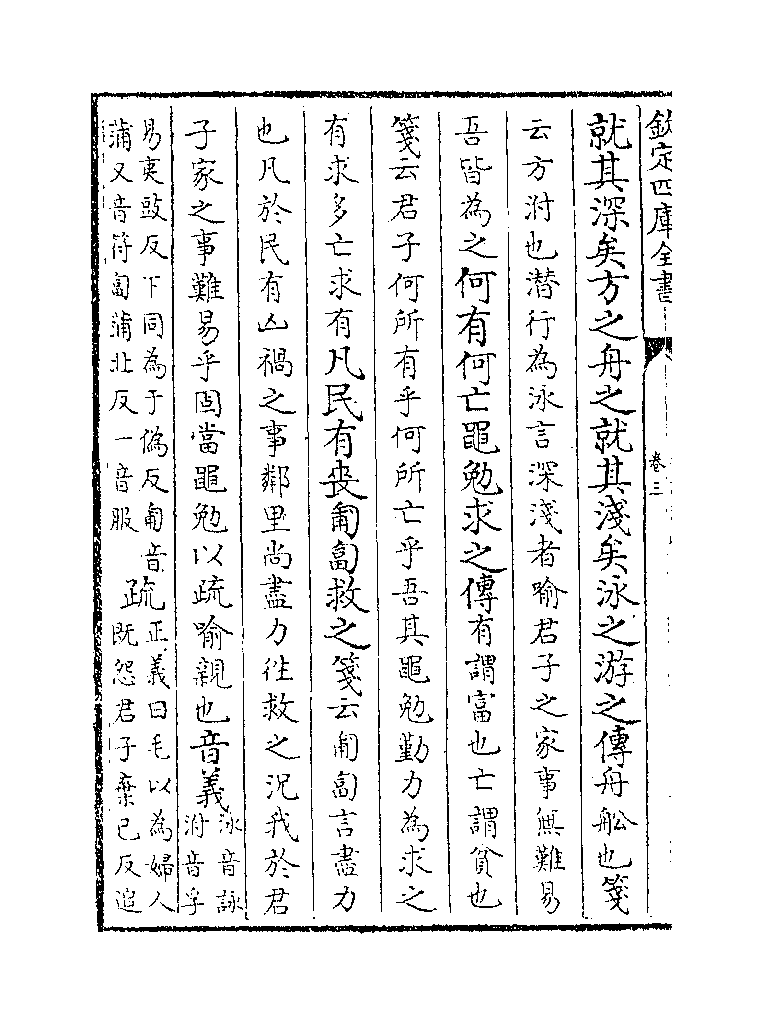 欽定四庫全書
卷三
就其深矣方之舟之就其淺矣泳之游之傳舟船也箋
云方泭也潜行為泳言深淺者喻君子之家事無難易
吾皆為之何有何亡黽勉求之傳有謂富也亡謂貧也
箋云君子何所有乎何所亡乎吾其黽勉勤力為求之
有求多亡求有凡民有喪匍匐救之箋云匍匐言盡力
也凡於民有凶禍之事鄰里尚盡力往救之況我於君
子家之事難易乎固當黽勉以疏喻親也音義
泳音詠
泭音孚
易夷豉反下同為于偽反匍音
蒲又音符匐蒲北反一音服
疏
正義曰毛以為婦人
既怨君子棄已反追